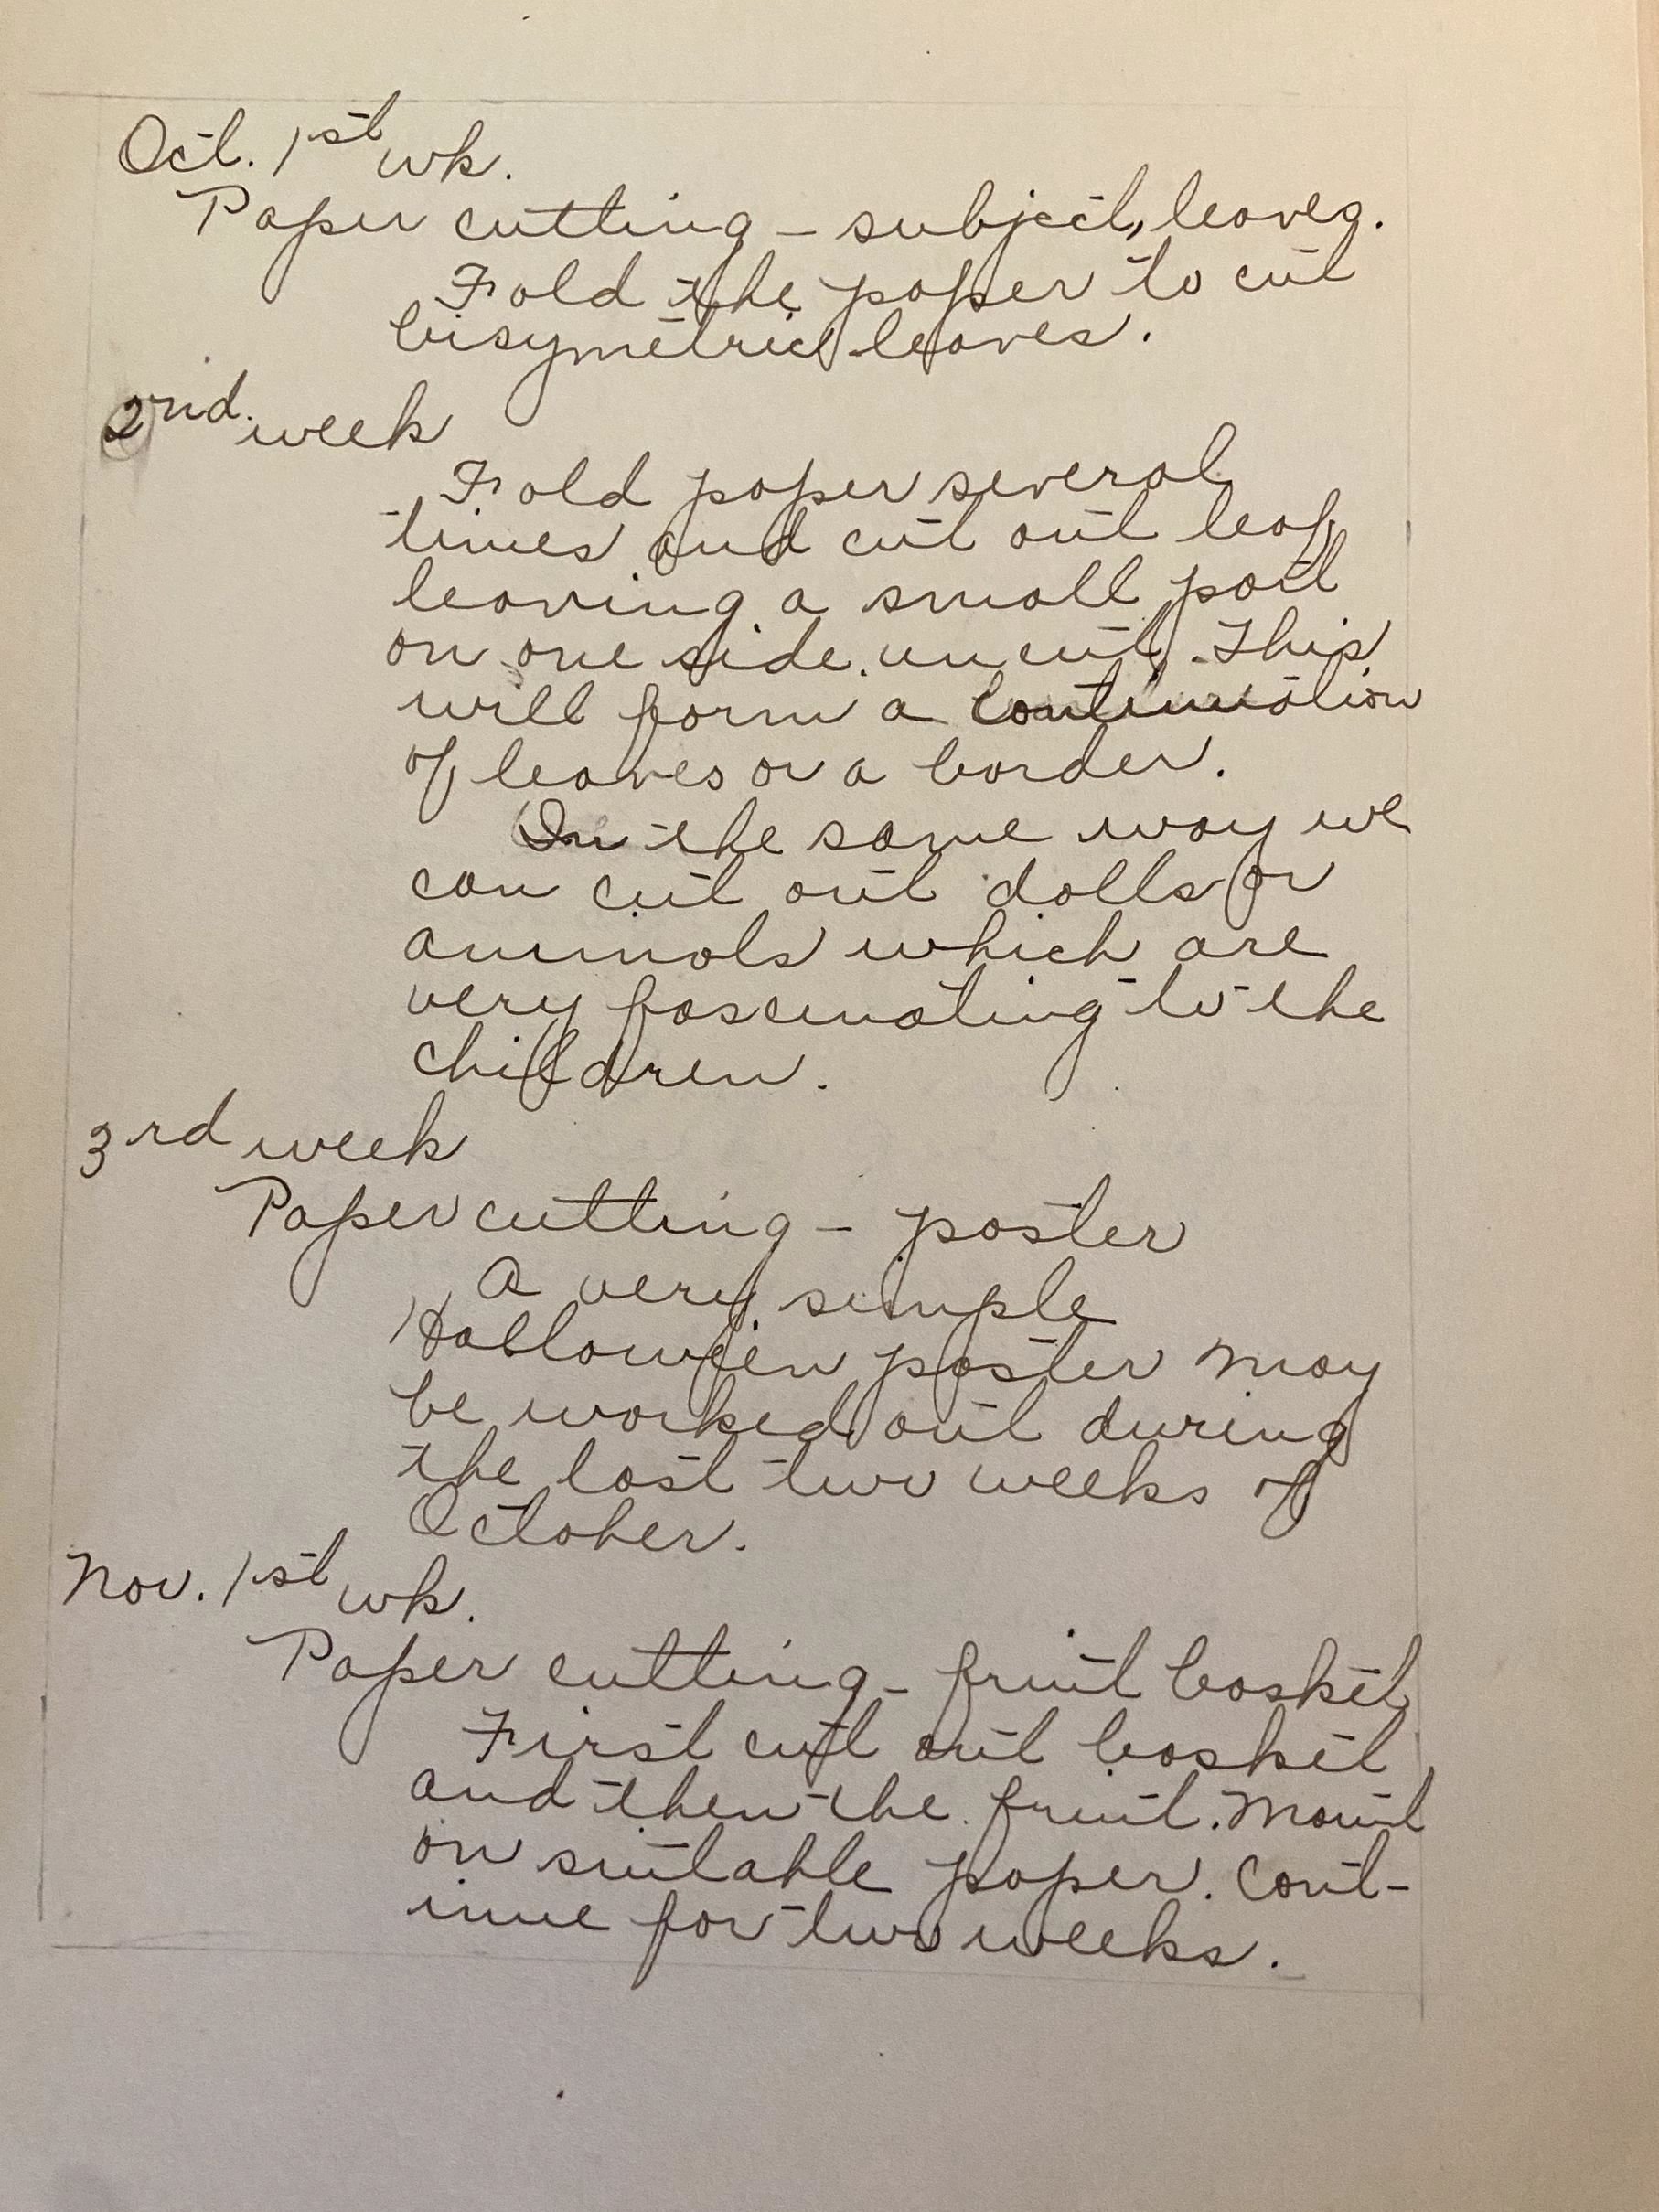 Oct. 1st wk.
Paper cutting - subject, leaves.
Fold the paper to cut
bisymetric leaves.
2nd. week
Fold paper several
times and cut out leaf,
leaving a small part
on one side uncut. This
will form a continuation
of leaves or a border.
In the same way we
can cut out dolls or
animals which are
very fascinating to the
children.
3rd week
Paper cutting - poster
A very simple
Halloween poster may
be worked out during
the last two weeks of
October.
Nov. 1st wk.
Paper cutting - fruit basket
First cut out basket
and then the fruit. Mount
on suitable paper. Cont-
inue for two weeks.